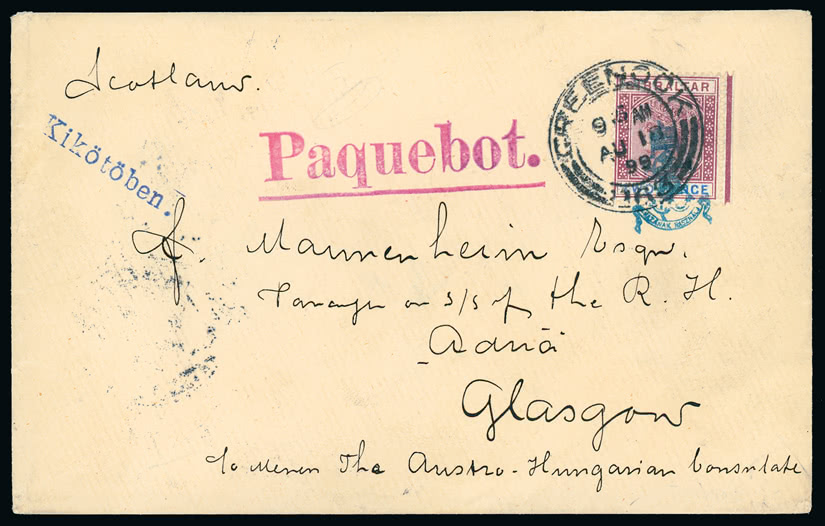 Scotland.
Kikötöben.
Paquebot.
GREENOCK
9 AM
AU 18
99
GIBRALTAR
PENCE
A. Mannenheim Esqu.
on s/s of the R. H.
Adria
Glasgow
The Austro-Hungarian Consulate